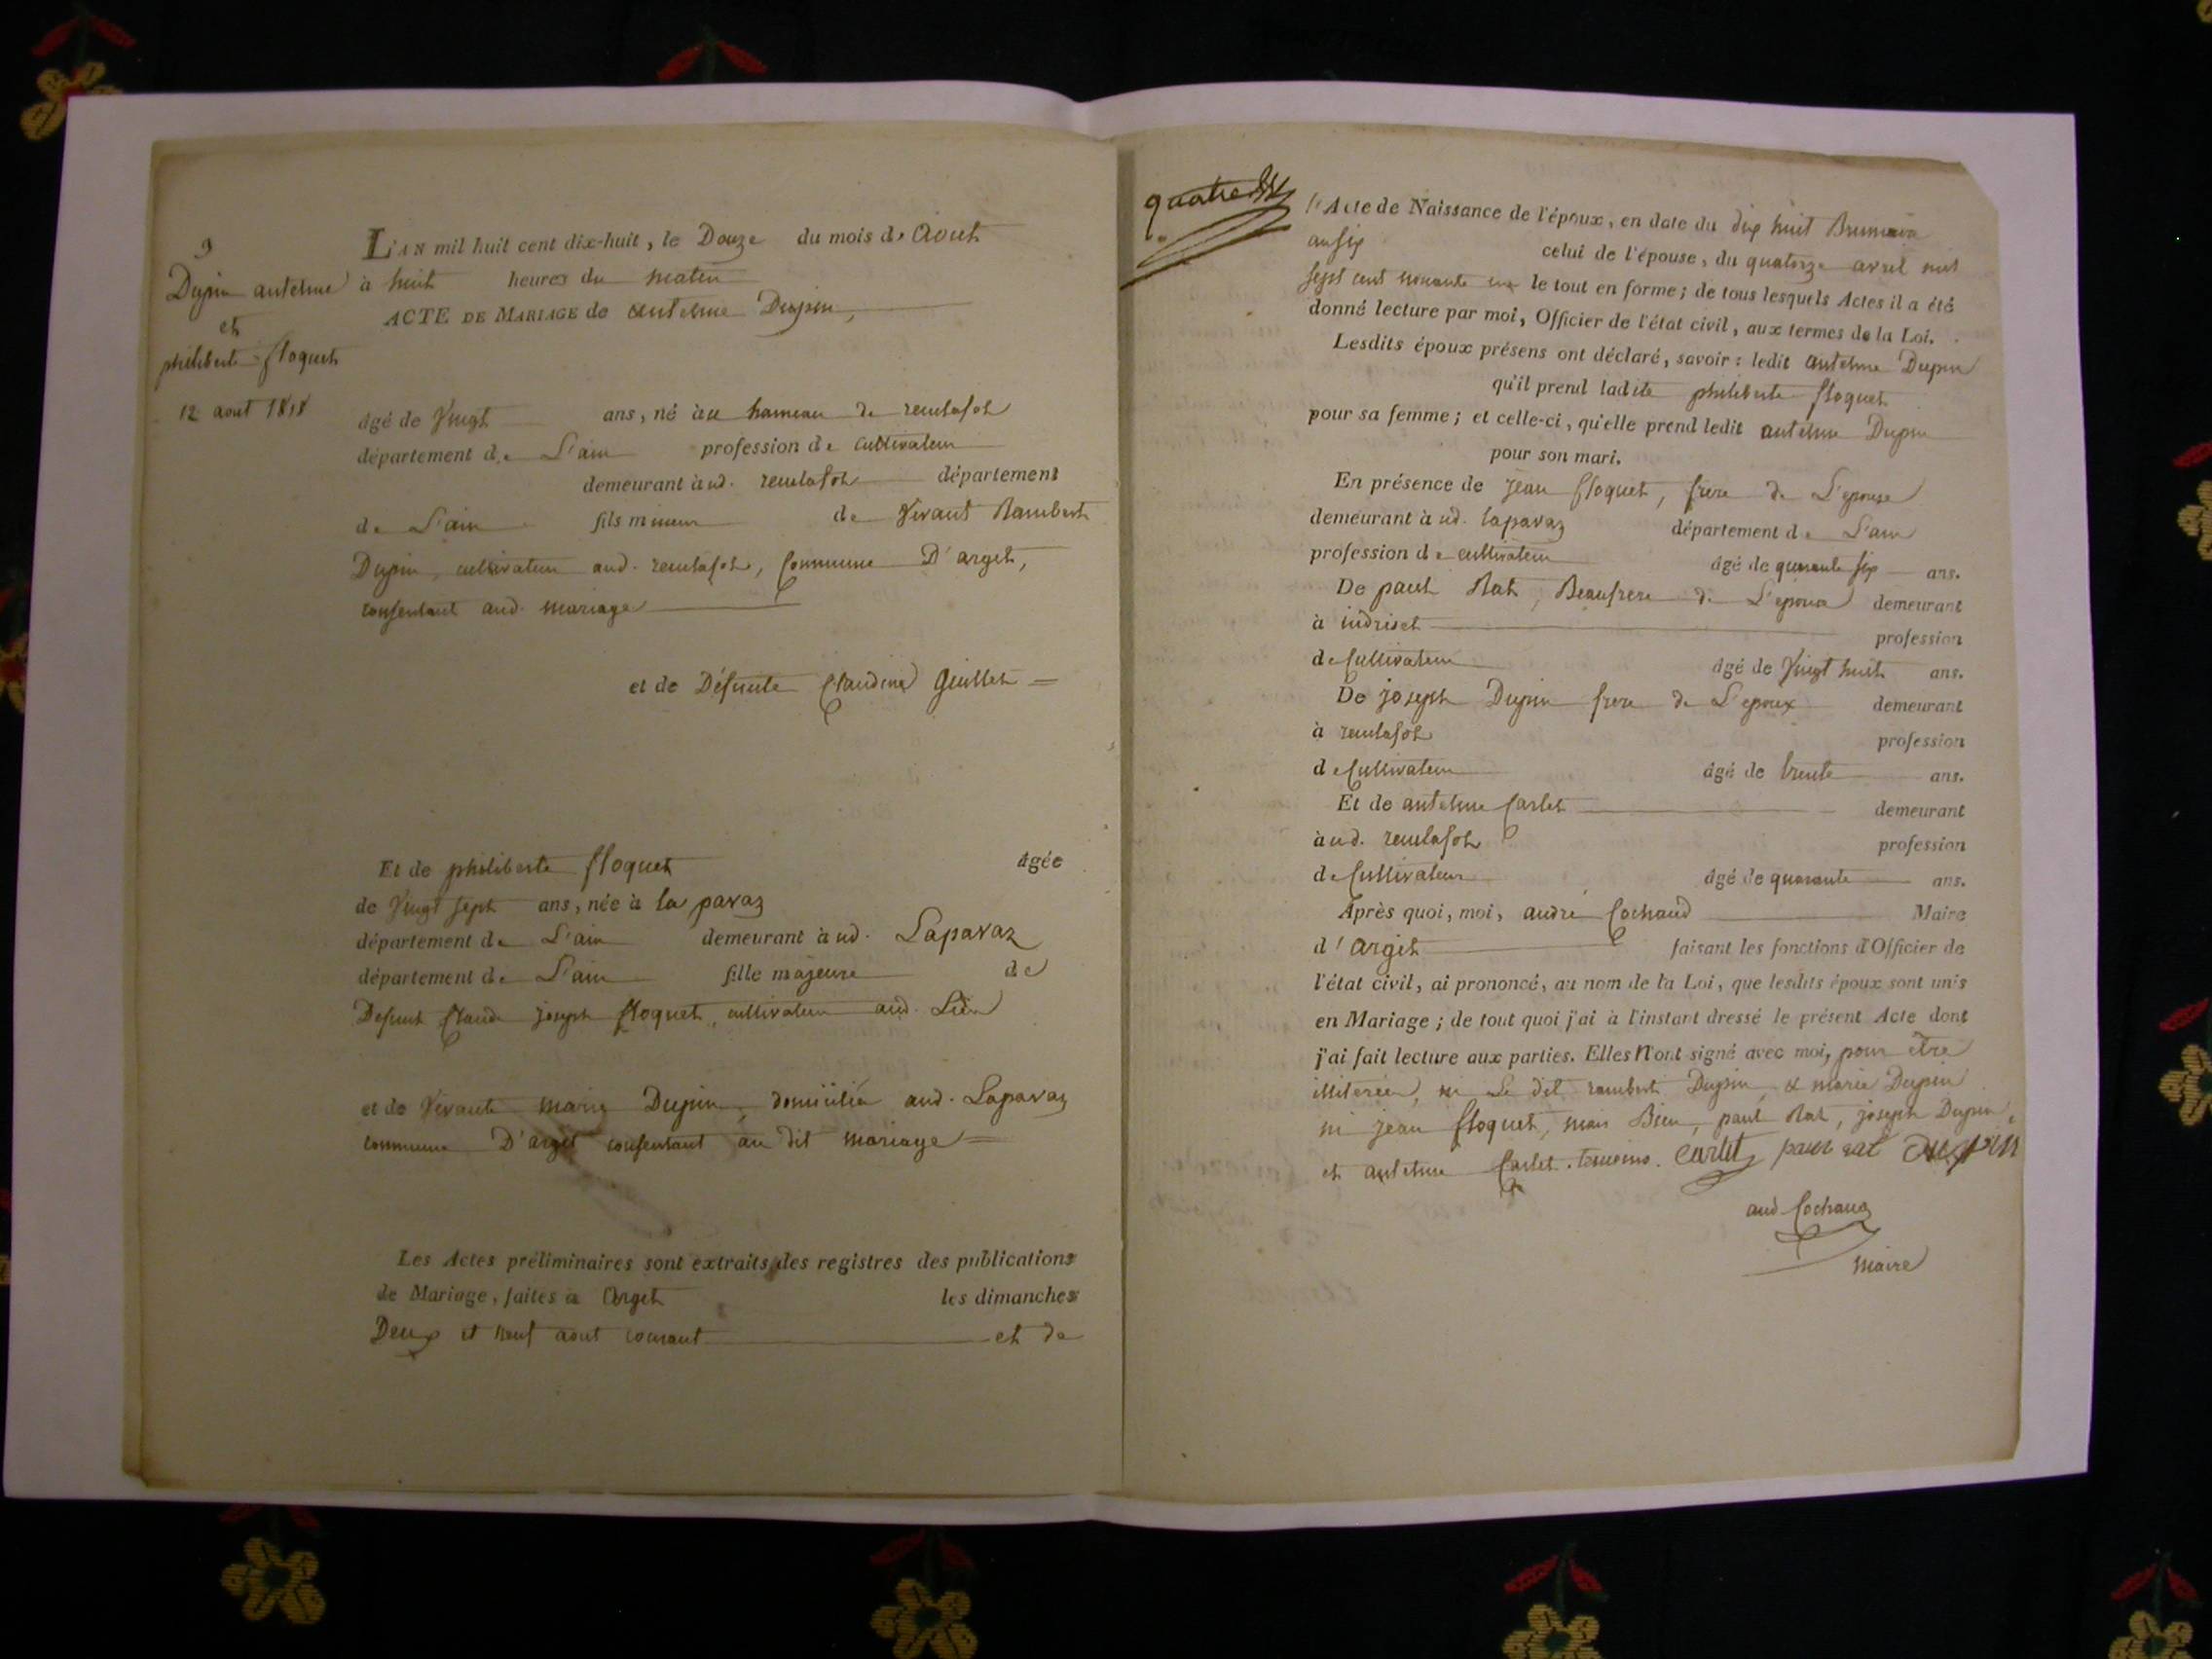 9
Dupin antelme
et
philiberte floquet
12 aout 1818
L'AN mil huit cent dix-huit, le Douze du mois d. Aout
à huit heures du matin
ACTE DE MARIAGE de antelme Dupin,
âgé de Vingt ans, né à au hameau de remlafol
département de L'ain profession de cultivateur
demeurant à ud. remlafol département
de L'ain fils mineur de Vivant Rambert
Dupin, cultivateur aud. remlafol, Commune D'arget,
consentant aud. mariage
et de Défunte Claudine guillet
Et de philiberte floquet âgée
de Vingt sept ans, née à la pavaz
département de L'ain demeurant à ud. Lapavaz
département de L'ain fille majeure de
Defunt Claude joseph floquet, cultivateur aud. Lieu
et de Vivante marie Dupin, domiciliée aud. Lapavaz
commune D'arget consentant au dit mariage
Les Actes préliminaires sont extraits des registres des publications
de Mariage, faites à Arget les dimanches
Deux et neuf aout courant et de
quatre
l'Acte de Naissance de l'époux, en date du dix huit Brumaire
an six celui de l'épouse, du quatorze avril mil
sept cent nonante un le tout en forme; de tous lesquels Actes il a été
donné lecture par moi, Officier de l'état civil, aux termes de la Loi.
Lesdits époux présens ont déclaré, savoir: ledit antelme Dupin
qu'il prend ladite philiberte floquet
pour sa femme; et celle-ci, qu'elle prend ledit antelme Dupin
pour son mari.
En présence de jean floquet, frere de L'epouse
demeurant à ud. lapavaz département de L'ain
profession de cultivateur âgé de quarante six ans.
De paul Rat, Beaufrere de L'epoux demeurant
à indriset profession
de Cultivateur âgé de Vingt huit ans.
De joseph Dupin frere de L'epoux demeurant
à remlafol profession
de Cultivateur âgé de trente ans.
Et de antelme Carlet demeurant
à ud. remlafol profession
de Cultivateur âgé de quarante ans.
Après quoi, moi, andré Cochaud Maire
d'Arget faisant les fonctions d'Officier de
l'état civil, ai prononcé, au nom de la Loi, que lesdits époux sont unis
en Mariage; de tout quoi j'ai à l'instant dressé le présent Acte dont
j'ai fait lecture aux parties. Elles n'ont signé avec moi, pour être
illiterées, ni Le dit rambert Dupin, & marie Dupin
ni jean floquet, mais Bien, paul Rat, joseph Dupin,
et antelme Carlet. temoins. carlet paul rat dupin
and Cochaud
maire